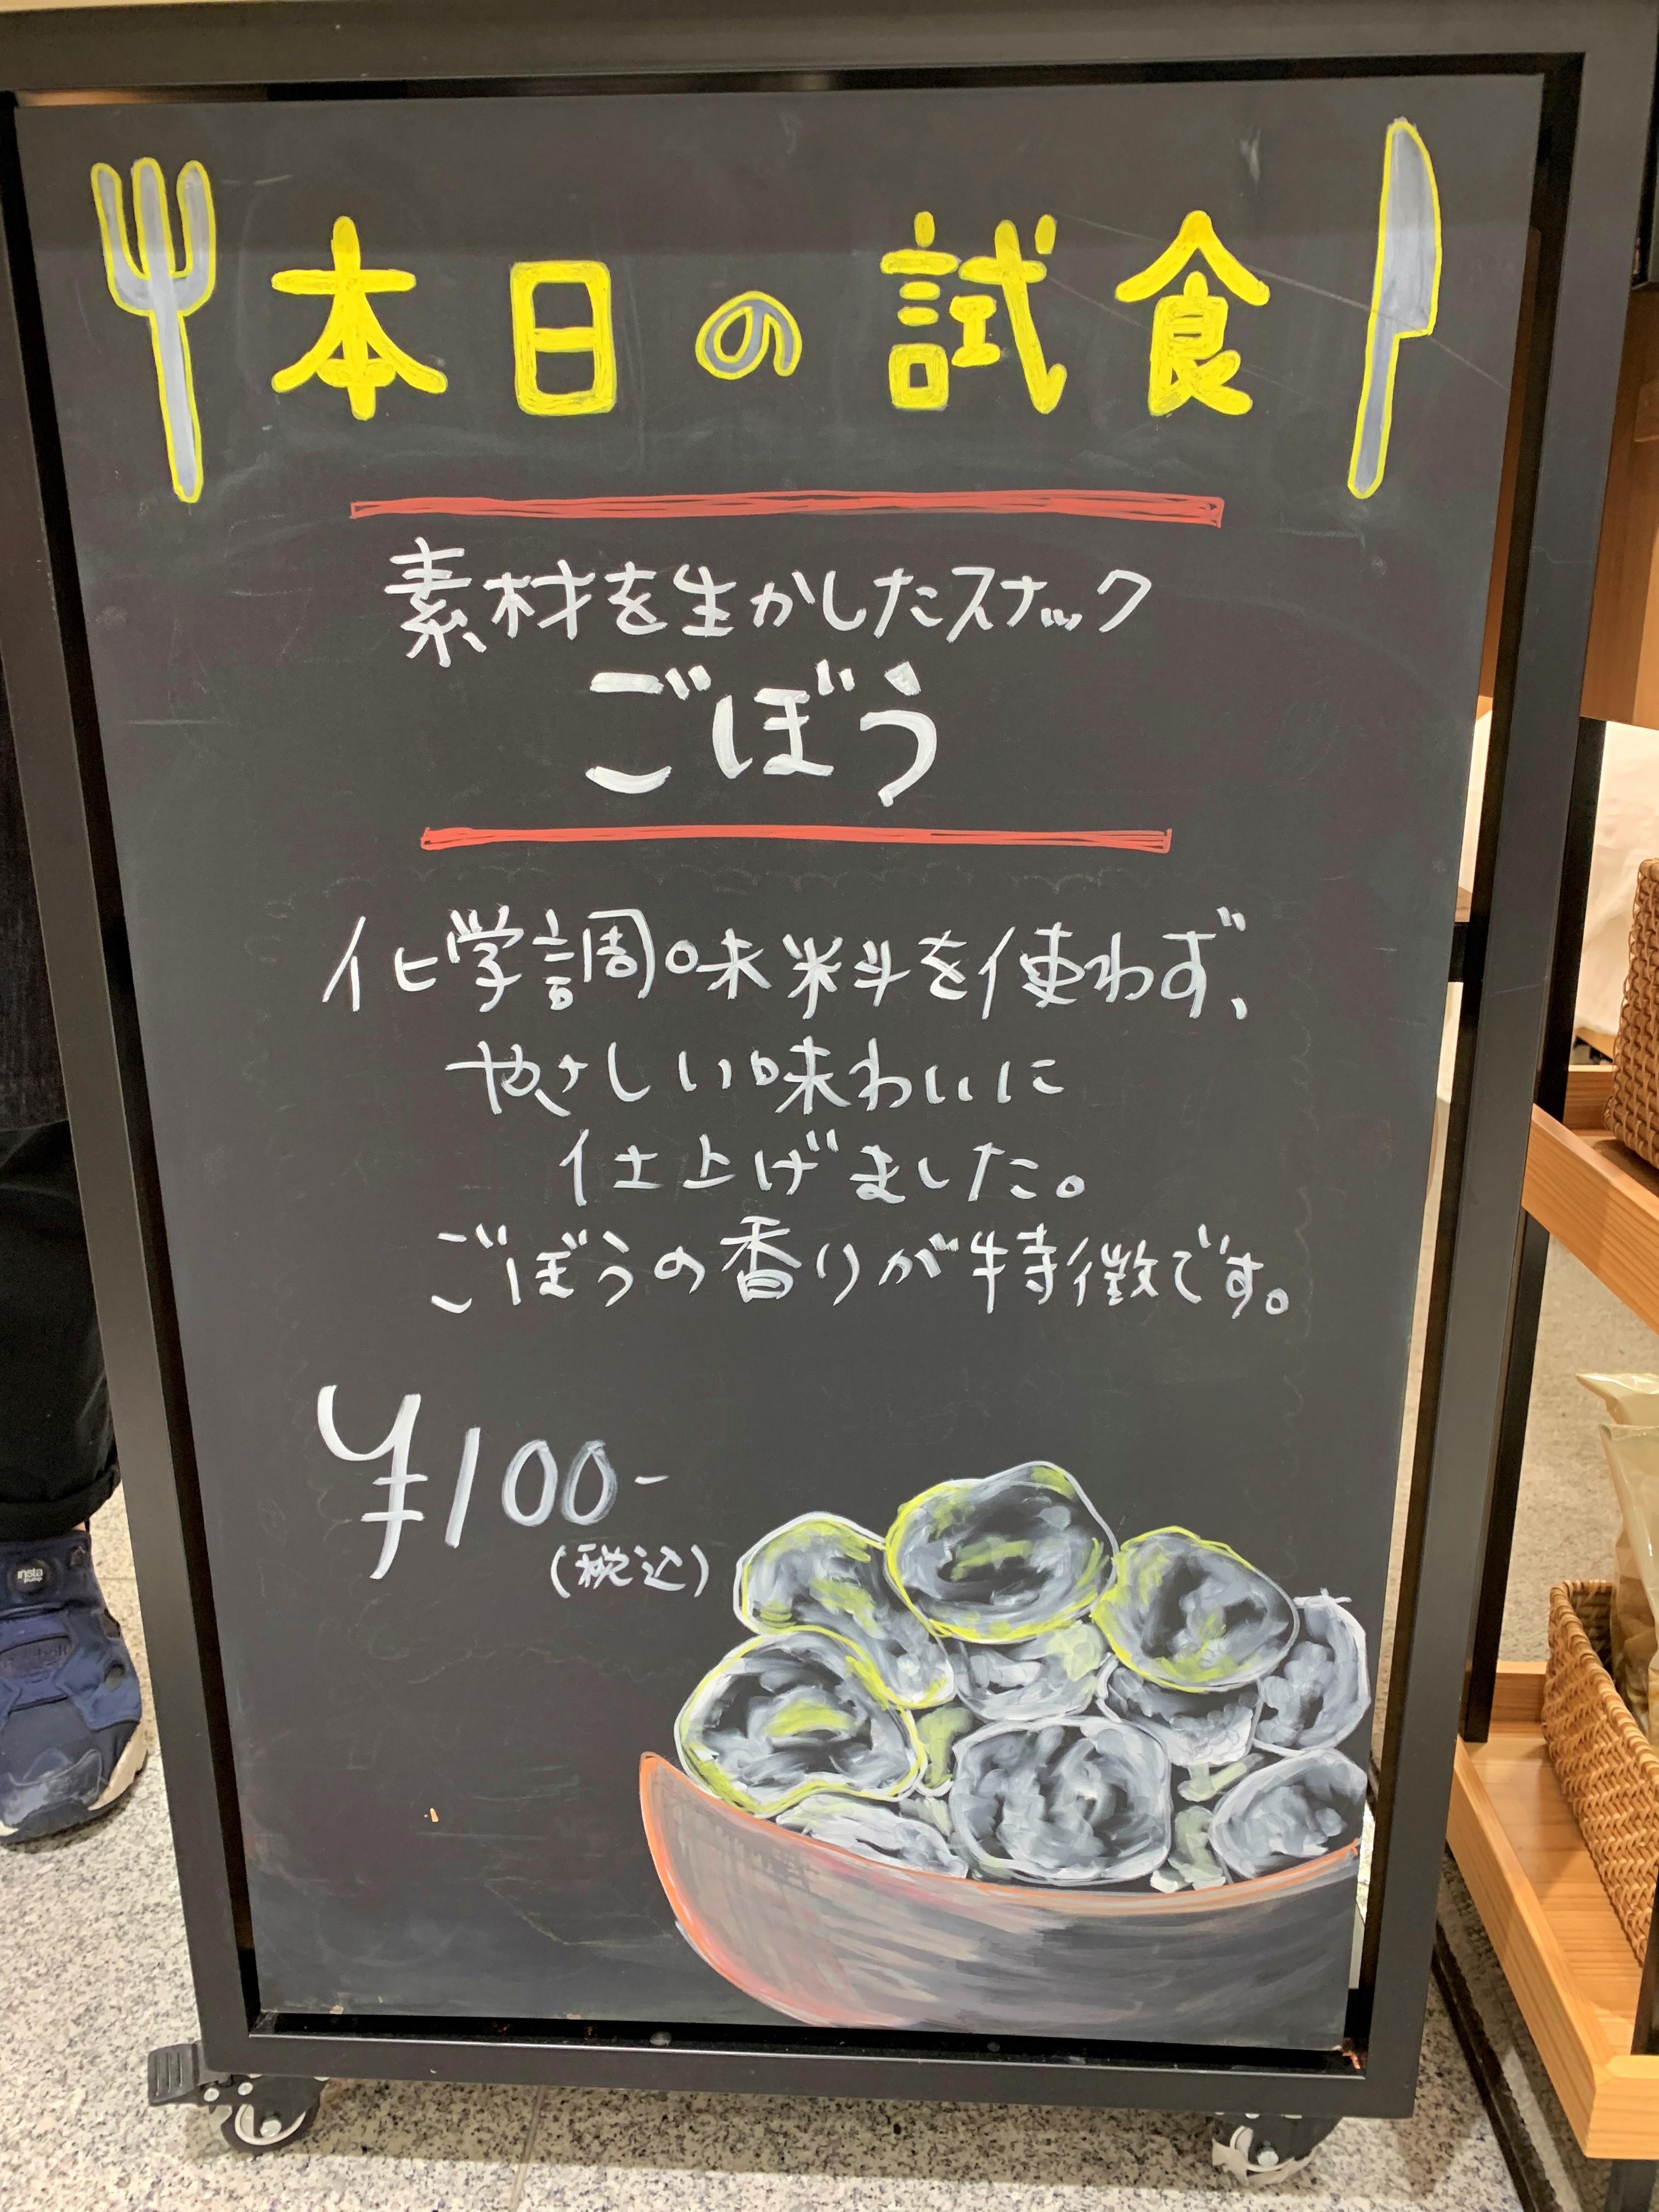 本日の試食
素材を生かしたスナック
ごぼう
化学調味料を使わず、
やさしい味わいに
仕上げました。
ごぼうの香りが特徴です。
¥100-
(税込)
insta
pump